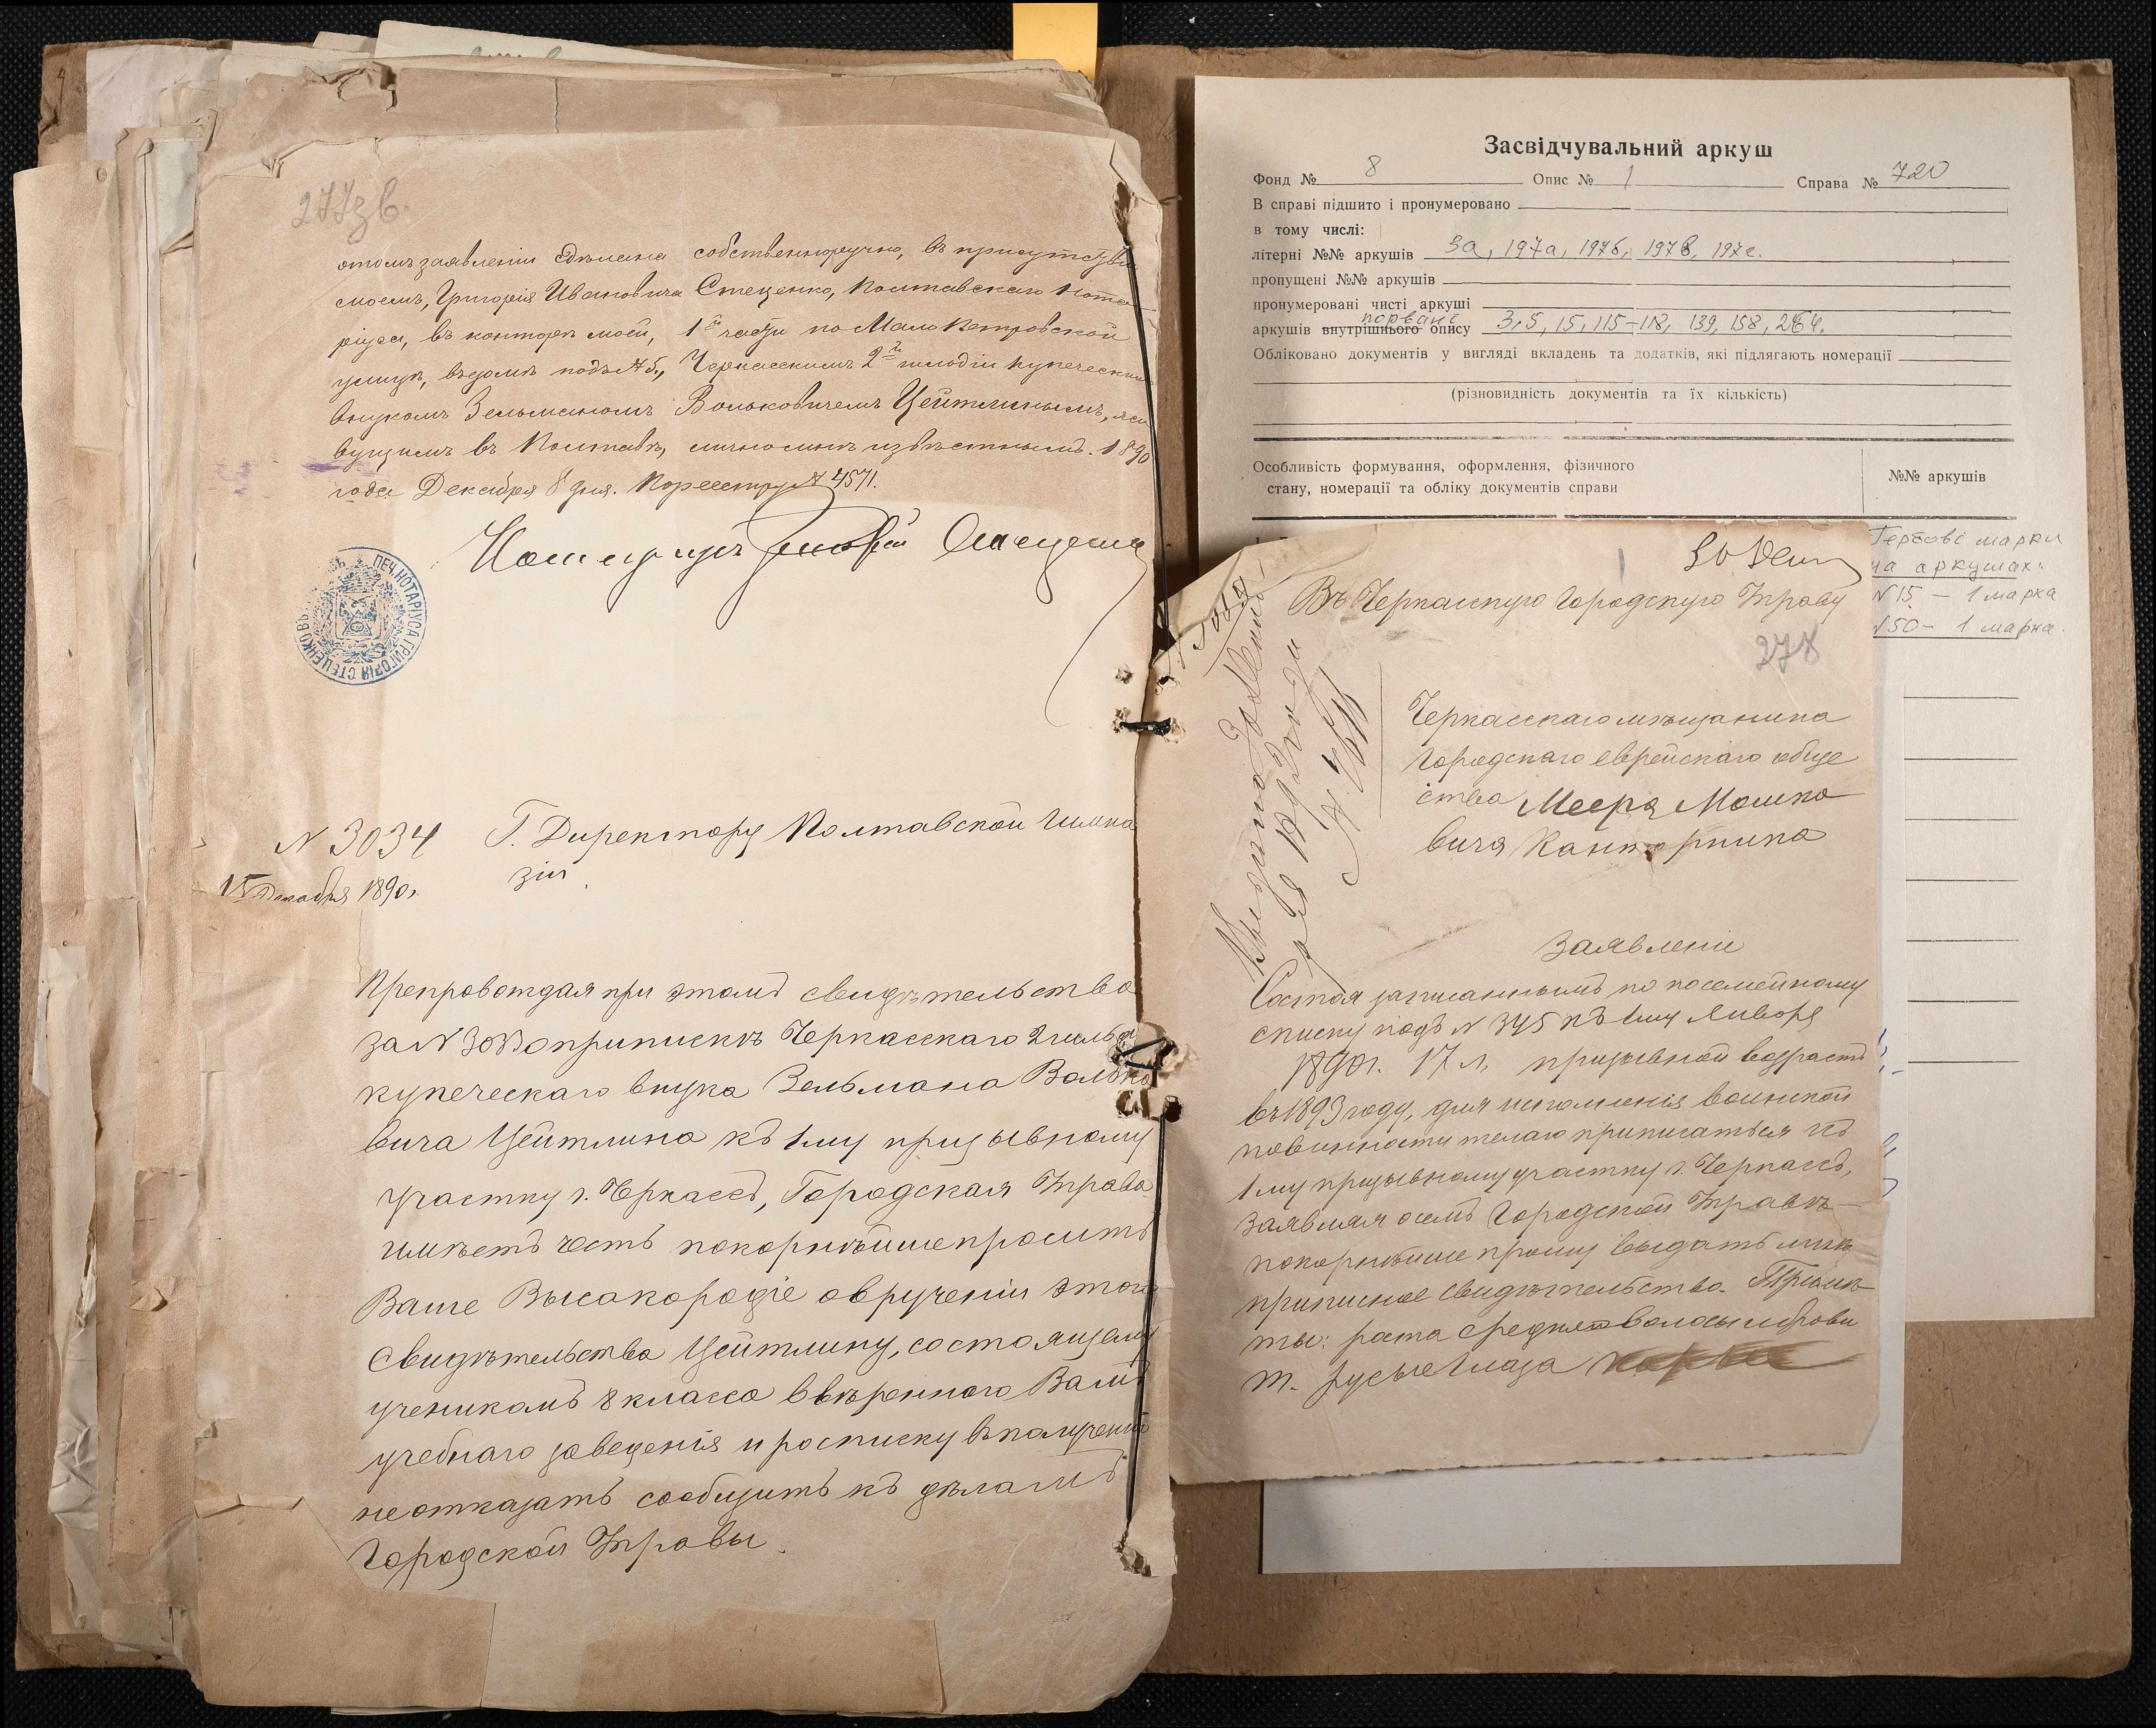 277зв.
этомъ заявленіи сдѣлана собственноручно, въ присутствіи
моемъ, Григорія Ивановича Стеценко, Полтавскаго Нота
ріуса, въ конторѣ моей, 1й части по Мало Петровской
улицѣ, въ домѣ подъ № 5, Черкасскимъ 2й гильдіи купеческимъ
внукомъ Зельманомъ Вольковичемъ Цейтлинымъ, жи
вущимъ въ Полтавѣ, лично мнѣ извѣстнымъ. 1890
года Декабря 8 дня. По реестру № 4571.
Нотаріусъ Григорій Стеценко
ПЕЧ. НОТАРІУСА ГРИГОРІЯ СТЕЦЕНКО ВЪ
N 3034
15 Декабря 1890 г.
Г. Директору Полтавской Гимна
зіи
Препровождая при этомъ свидѣтельство
за N о припискѣ Черкасскаго 2 гильд
купеческаго внука Зельмана Волько
вича Цейтлина къ 1му призывному
участку г. Черкассъ, Городская Управа
имѣетъ честь покорнѣйше просить
Ваше Высокородіе о врученіи этого
Свидѣтельства Цейтлину, состоящему
ученикомъ 8 класса ввѣреннаго Вамъ
учебнаго заведенія и росписку въ полученіи
не отказать сообщить къ дѣламъ
Городской Управы.
Засвідчувальний аркуш
Фонд № 8 Опис № 1 Справа № 720
В справі підшито і пронумеровано
в тому числі:
літерні №№ аркушів 3а, 197а, 197б, 197в, 197г.
пропущені №№ аркушів
пронумеровані чисті аркуші
порвані
аркушів внутрішнього опису 3,5, 15, 115-118, 139, 158, 264.
Обліковано документів у вигляді вкладень та додатків, які підлягають номерації
(різновидність документів та їх кількість)
Особливість формування, оформлення, фізичного
стану, номерації та обліку документів справи
№№ аркушів
Гербові марки
на аркушах:
N 15 - 1 марка
N 50 - 1 марка.
Въ Черкасскую Городскую Управу
278
Черкасскаго мѣщанина
Городскаго еврейскаго обще
ства Меера Мошко
вича
Заявленіе
Состоя записаннымъ по посемейному
списку подъ N 345 къ 1му Января
1890 г. 17 л. призывной возрастъ
въ 1893 году, для исполненія воинской
повинности желаю приписаться къ
1му призывному участку г. Черкассъ,
Заявляя о семъ Городской Управѣ
покорнѣйше прошу выдать мнѣ
приписное свидѣтельство. Примѣ
ты: роста средняго волосы и брови
т. русые глаза карые